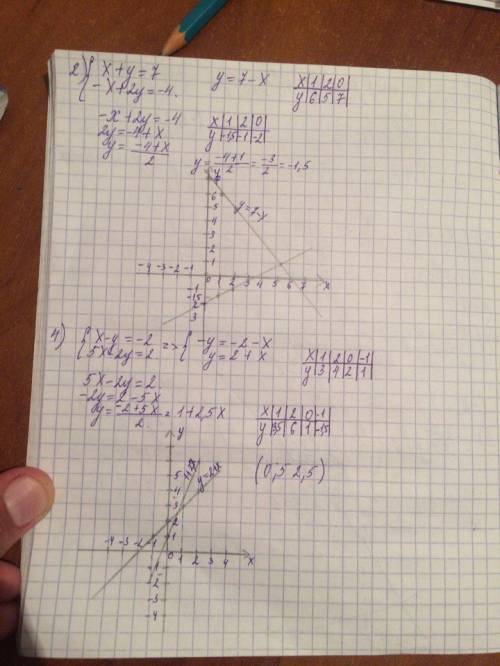 2) { x+y=7    y=7-x    x|1|2|0
-x+2y=-4.    y|6|5|7
-x+2y=-4    x|1|2|0
2y=-4+x    y|-1,5|-1|-2
y=(-4+x)/2
y=(-4+1)/2=-3/2=-1,5
y
6
5 y=7-x
4
3
2
1
-4 -3 -2 -1 0 1 2 3 4 5 6 7 x
-1
-1,5
2
3
4) { x-y=-2 => { -y=-2-x    x|1|2|0|-1
5x-2y=2    y=2+x    y|3|4|2|1
5x-2y=2
-2y=2-5x    x|1|2|0|-1
y=(-2+5x)/2=1+2,5x    y|3,5|6|1|-1,5
y
(0,5 2,5)
5
4 y=2+x
3
2
1
-4 -3 -2 -1 0 1 2 3 4 x
-1
-2
-3
-4